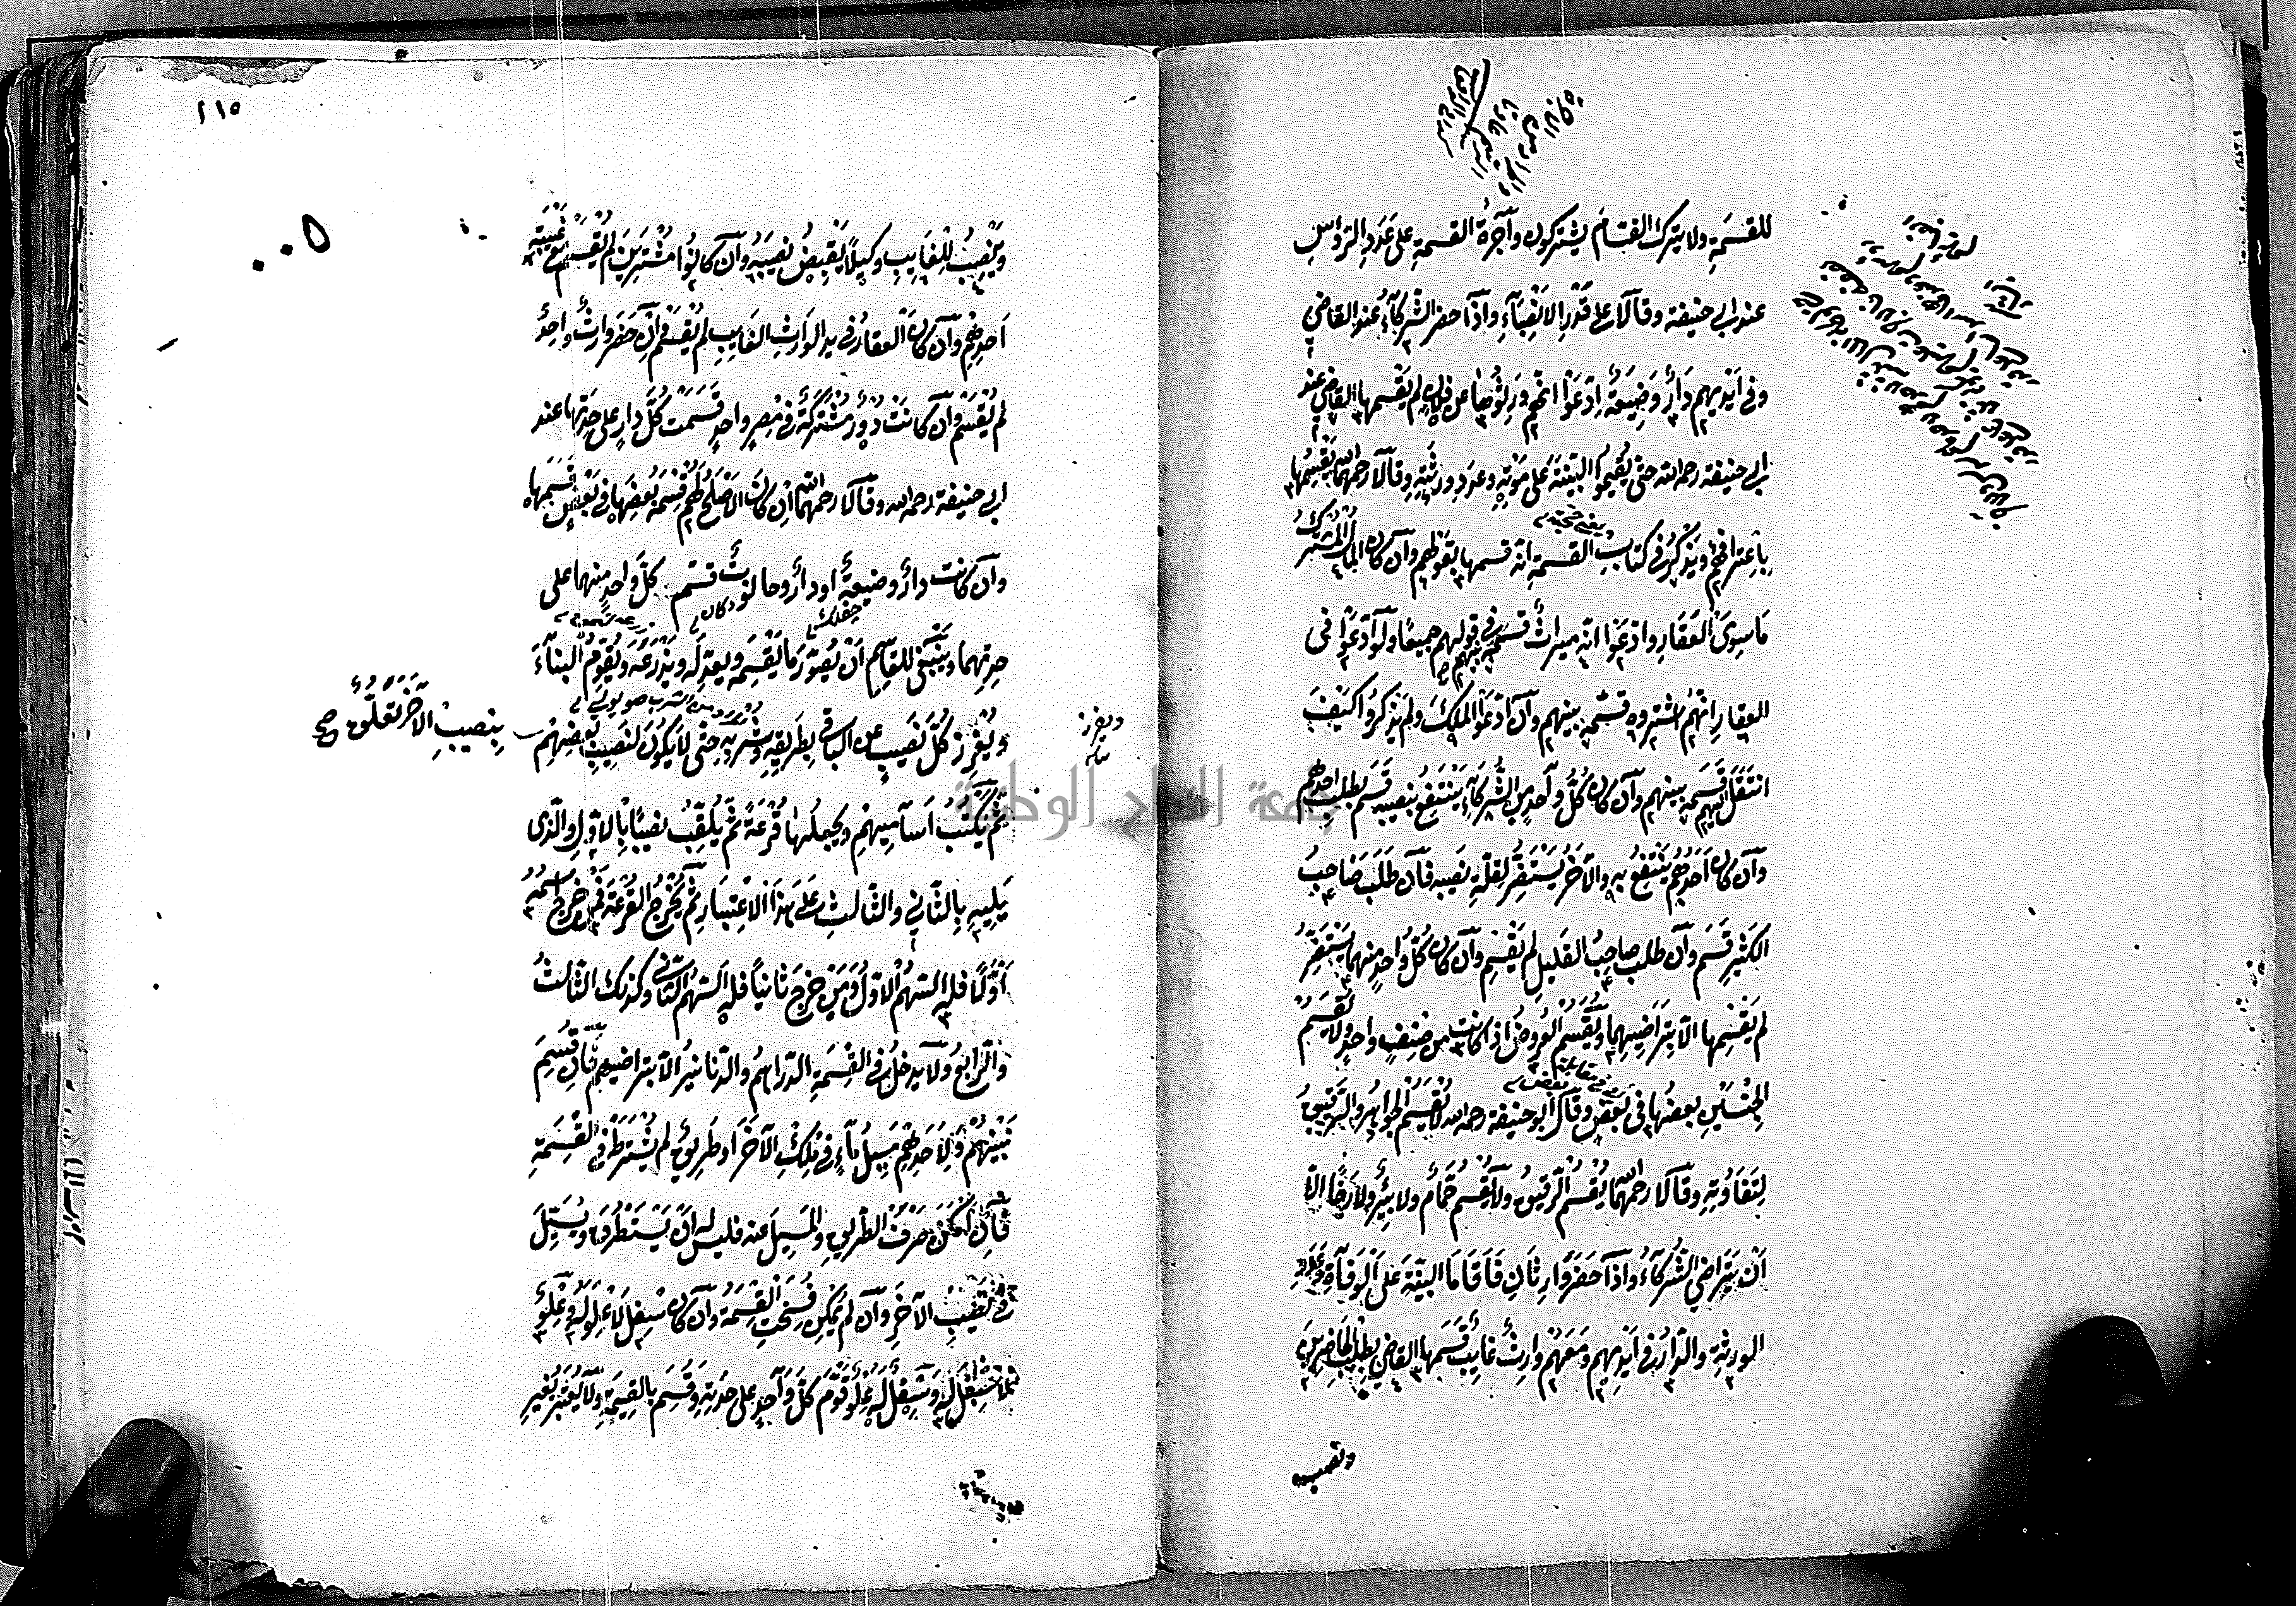 للقسمة ولا يترك القسام يشتركون وأجرة القسمة على عدد الرؤس
عند ابى حنيفة وقالا على قدر الانصباء واذا حضر الشركاء عند القاضي
وفى ايديهم دار وضيعة ادعوا انهم ورثوها عن فلان لم يقسمها القاضي عند
ابى حنيفة رحمه الله حتى يقيموا البينة على موته وعدد ورثته وقالا رحمهما الله يقسمها
باعترافهم ويذكر فى كتاب القسمة انه قسمها بقولهم وان كان المال المشترك
ما سوى العقار وادعوا انه ميراث قسم فى قولهم جميعا ولو ادعوا فى
العقار انهم اشتروه قسمه بينهم وان ادعوا الملك ولم يذكروا كيف
انتقل اليهم قسمه بينهم وان كان كل واحد من الشركاء ينتفع بنصيبه قسم بطلب احدهم
وان كان احدهم ينتفع به والآخر يستضر لقلة نصيبه فان طلب صاحب
الكثير قسم وان طلب صاحب القليل لم يقسم وان كان كل واحد منهما يستضر
لم يقسمها الا بتراضيهما ويقسم العروض اذا كانت من صنف واحد ولا يقسم
الجنسين بعضها فى بعض وقال ابو حنيفة رحمه الله لا يقسم الجواهر والرقيق
لتفاوته وقالا رحمهما الله يقسم الرقيق ولا يقسم حمام ولا بئر ولا رحا الا
ان يتراضى الشركاء واذا حضر وارثان فاقاما البينة على الوفاة وعدد
الورثة والدار فى ايديهم ومعهم وارث غايب قسمها القاضي بطلب الحاضرين
وتنصيب
١١٥
وينصب للغايب وكيلا يقبض نصيبه وان كانوا مشترين لم يقسم مع غيبة
احدهم وان كان العقار فى يد الوارث الغايب لم يقسم وان حضر وارث واحد
لم يقسم وان كانت دور مشتركة فى مصر واحد قسمت كل دار على حدتها عند
ابى حنيفة رحمه الله وقالا رحمهما الله ان كان الاصلح لهم قسمة بعضها فى بعض قسمها
وان كانت دار وضيعة او دار وحانوت قسم كل واحد منهما على
حدتهما وينبغى للقاسم ان يصور ما يقسمه ويعدله ويذرعه ويقوم البناء
ويفرز كل نصيب عن الباقى بطريقه وشربه حتى لا يكون لنصيب بعضهم
بنصيب الآخر تعلق صح
ثم يكتب اساميهم ويجعلها قرعة ثم يلقب نصيبا بالاول والذى
يليه بالثانى والثالث على هذا الاعتبار ثم يخرج القرعة فمن خرج اسمه
اولا فله السهم الاول ومن خرج ثانيا فله السهم الثانى وكذلك الثالث
والرابع ولا يدخل فى القسمة الدراهم والدنانير الا بتراضيهم فان قسم
بينهم ولاحدهم مسيل ماء فى ملك الآخر او طريق لم يشترط فى القسمة
فان امكن صرف الطريق والمسيل عنه فليس له ان يستطرق ويسيل
فى نصيب الآخر وان لم يمكن فسخت القسمة وان كان سفل لا علو له وعلو
لا سفل له وسفل له علو قوم كل واحد على حدته وقسم بالقيمة ولا يعتبر بغير
جامعة النجاح الوطنية